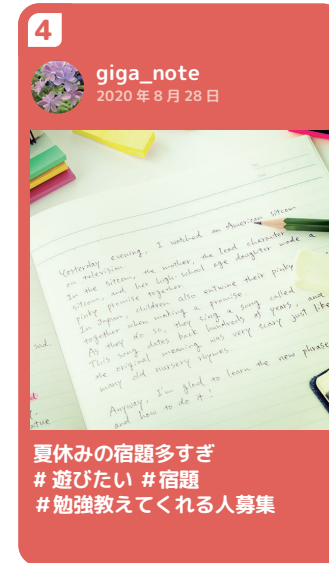 4
giga_note
2020年8月28日
Yesterday evening, I watched an American sitcom
on television.
In the sitcom, the mother, the lead character
sitcom, and her high-school age daughter made a
pinky promise together.
In Japan, children also entwine their pinky
together when making a promise.
As they do so, they sing a song called
This song dates back hundreds of years, and
the original meaning was very scary just like
many old nursery rhymes.
Anyway, I'm glad to learn the new phrase
and how to do it!
夏休みの宿題多すぎ
# 遊びたい #宿題
#勉強教えてくれる人募集